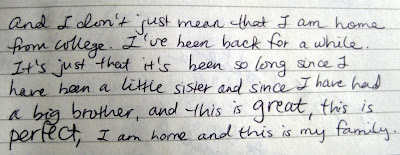 and I don't just mean that I am home
from college. I've been back for a while.
It's just that it's been so long since I
have been a little sister and since I have had
a big brother, and this is great, this is
perfect, I am home and this is my family.